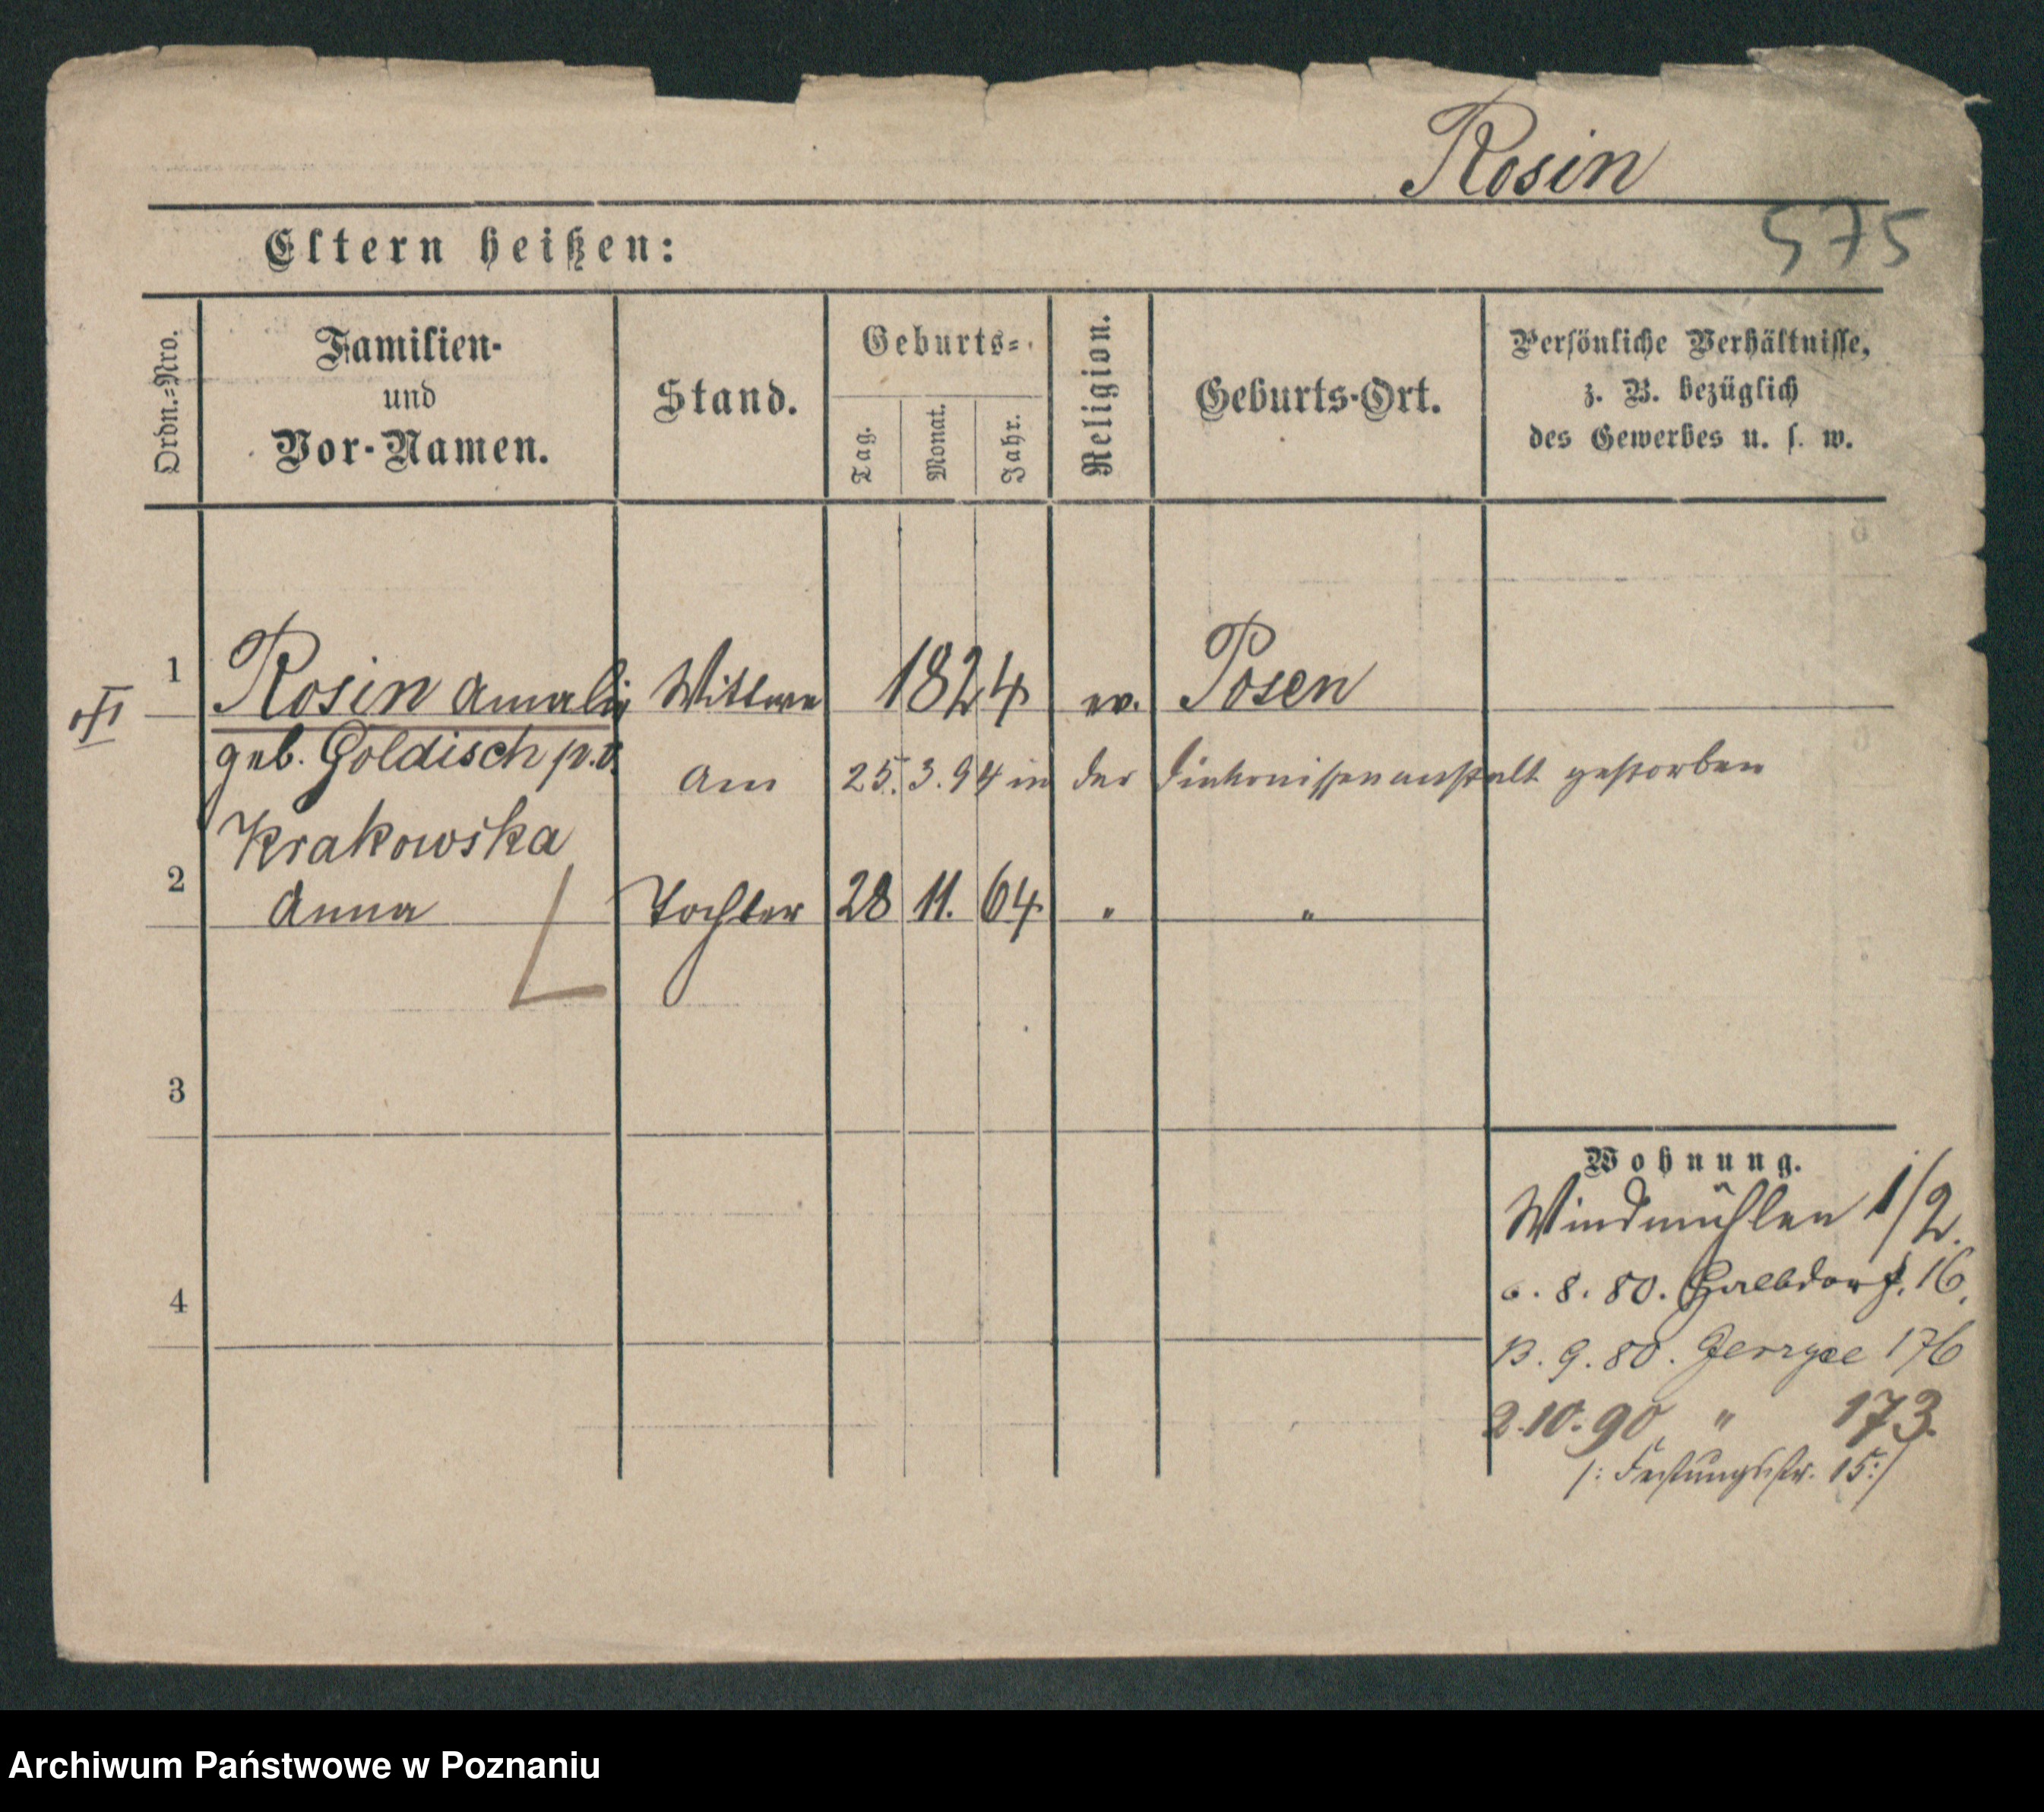 Rosin
575
Eltern heißen:
Ordn.-Nro.
Familien-
und
Vor-Namen.
Stand.
Geburts-
Tag.
Monat.
Jahr.
Religion.
Geburts-Ort.
Persönliche Verhältnisse,
z. B. bezüglich
des Gewerbes u. s. w.
1 Rosin Amalie Wittwe 1824 ev. Posen
geb. Goldisch p.v.
am 25.3.94 in der Diakonissenanstalt gestorben
Krakowska
2 Anna Tochter 28 11. 64 " "
3
4
Wohnung.
Windmühlen 1/2.
6. 8. 80. Halbdorf. 16.
13. 9. 80. Gerryce 176
2.10.90 " 173.
/: Festungsstr. 15:/
Archiwum Państwowe w Poznaniu